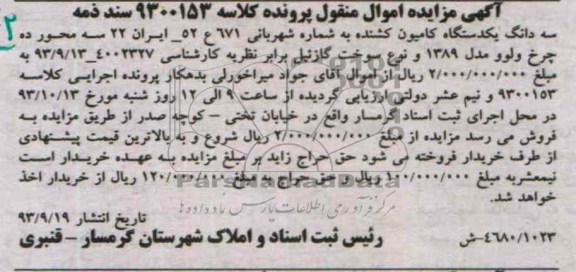 آگهی مزایده اموال منقول پرونده کلاسه ۹۳۰۰۱۵۳ سند ذمه
سه دانگ یکدستگاه کامیون کشنده به شماره شهربانی ۶۷۱ ع ۵۲_ ایران ۲۲ سه محور ده
چرخ ولوو مدل ۱۳۸۹ و نوع سوخت گازئیل برابر نظریه کارشناسی ۴۰۰۲۳۲۷_۹۳/۹/۱۳ به
مبلغ ۲/۰۰۰/۰۰۰/۰۰۰ ریال از اموال آقای جواد میراخورلی بدهکار پرونده اجرایی کلاسه
۹۳۰۰۱۵۳ و نیم عشر دولتی ارزیابی گردیده از ساعت ۹ الی ۱۲ روز شنبه مورخ ۹۳/۱۰/۱۳
در محل اجرای ثبت اسناد گرمسار واقع در خیابان تختی - کوچه صدر از طریق مزایده به
فروش می رسد مزایده از مبلغ ۲/۰۰۰/۰۰۰/۰۰۰ ریال شروع و به بالاترین قیمت پیشنهادی
از طرف خریدار فروخته می شود حق حراج زاید بر مبلغ مزایده به عهده خریدار است
نیمعشریه مبلغ ۱۰۰/۰۰۰/۰۰۰ ریال و حق حراج به مبلغ ۱۲۰/۰۰۰/۰۰۰ ریال از خریدار اخذ
خواهد شد.
تاریخ انتشار ۹۳/۹/۱۹
۴۶۸۰/۱۰۲۳-ش رئیس ثبت اسناد و املاک شهرستان گرمسار - قنبری
ParsNamadData
مرکز فرآوری اطلاعات پارس نماد داده ها